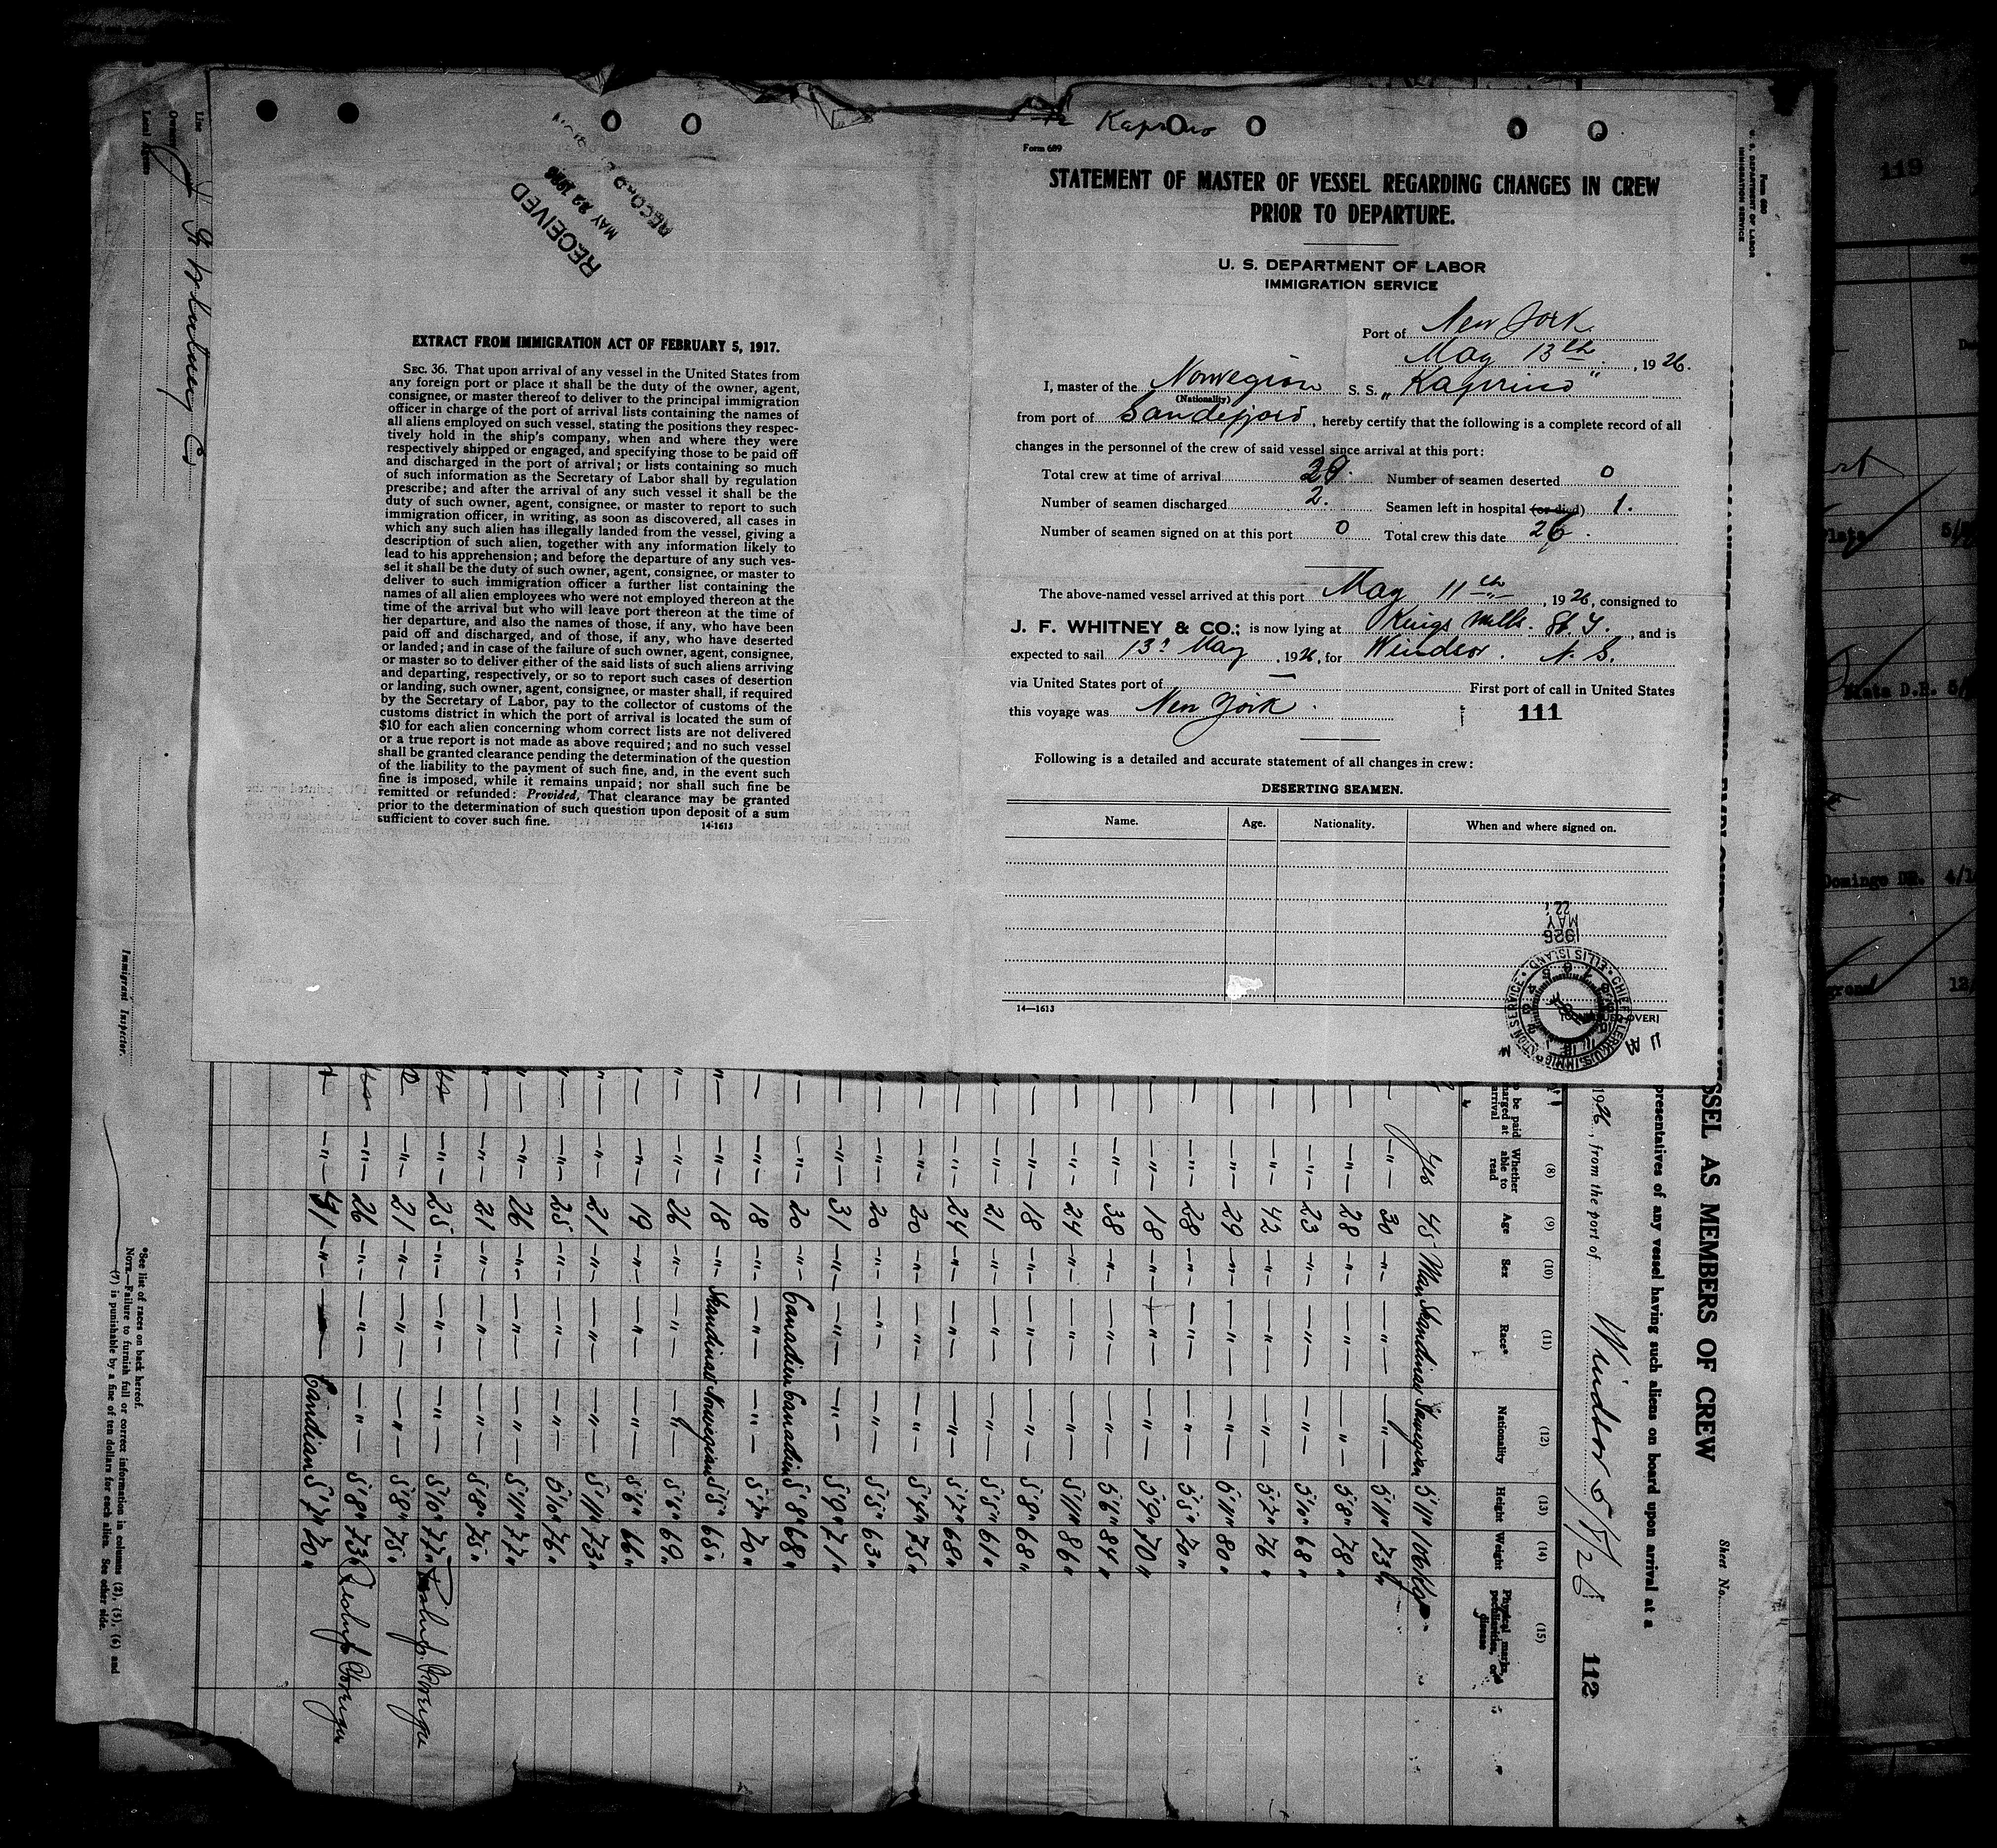 Form 689
STATEMENT OF MASTER OF VESSEL REGARDING CHANGES IN CREW
PRIOR TO DEPARTURE.
U. S. DEPARTMENT OF LABOR
IMMIGRATION SERVICE
Port of New York
May 13th, 1926.
I, master of the Norwegian S. S. „Kaprino"
(Nationality)
from port of Sandefjord, hereby certify that the following is a complete record of all
changes in the personnel of the crew of said vessel since arrival at this port:
Total crew at time of arrival 29. Number of seamen deserted 0
Number of seamen discharged 2. Seamen left in hospital (or died) 1.
Number of seamen signed on at this port 0 Total crew this date 26.
The above-named vessel arrived at this port May 11th, 1926, consigned to
J. F. WHITNEY & CO.; is now lying at Kings Mills. , and is
expected to sail 13 May, 1926, for Windsor. N. S.
via United States port of — First port of call in United States
this voyage was New York. 111
Following is a detailed and accurate statement of all changes in crew:
DESERTING SEAMEN.
Name. Age. Nationality. When and where signed on.
14—1613
[CONTINUED OVER]
1926
MAY
22
CHIEF CLERK U.S. IMMIGRATION SERVICE • ELLIS ISLAND •
RECEIVED
MAY 22 1926
RECORD
EXTRACT FROM IMMIGRATION ACT OF FEBRUARY 5, 1917.
SEC. 36. That upon arrival of any vessel in the United States from
any foreign port or place it shall be the duty of the owner, agent,
consignee, or master thereof to deliver to the principal immigration
officer in charge of the port of arrival lists containing the names of
all aliens employed on such vessel, stating the positions they respec-
tively hold in the ship's company, when and where they were
respectively shipped or engaged, and specifying those to be paid off
and discharged in the port of arrival; or lists containing so much
of such information as the Secretary of Labor shall by regulation
prescribe; and after the arrival of any such vessel it shall be the
duty of such owner, agent, consignee, or master to report to such
immigration officer, in writing, as soon as discovered, all cases in
which any such alien has illegally landed from the vessel, giving a
description of such alien, together with any information likely to
lead to his apprehension; and before the departure of any such ves-
sel it shall be the duty of such owner, agent, consignee, or master to
deliver to such immigration officer a further list containing the
names of all alien employees who were not employed thereon at the
time of the arrival but who will leave port thereon at the time of
her departure, and also the names of those, if any, who have been
paid off and discharged, and of those, if any, who have deserted
or landed; and in case of the failure of such owner, agent, consignee,
or master so to deliver either of the said lists of such aliens arriving
and departing, respectively, or so to report such cases of desertion
or landing, such owner, agent, consignee, or master shall, if required
by the Secretary of Labor, pay to the collector of customs of the
customs district in which the port of arrival is located the sum of
$10 for each alien concerning whom correct lists are not delivered
or a true report is not made as above required; and no such vessel
shall be granted clearance pending the determination of the question
of the liability to the payment of such fine, and, in the event such
fine is imposed, while it remains unpaid; nor shall such fine be
remitted or refunded: Provided, That clearance may be granted
prior to the determination of such question upon deposit of a sum
sufficient to cover such fine. 14-1613
U. S. DEPARTMENT OF LABOR
IMMIGRATION SERVICE
Sheet No.
SSEL AS MEMBERS OF CREW
presentatives of any vessel having such aliens on board upon arrival at a
1926, from the port of Windsor 5/8/26 112
(8) (9) (10) (11) (12) (13) (14) (15)
Whether able to read Age Sex Race* Nationality Height Weight Physical marks, peculiarities, or disease
Yes 45 Man 5'11" 106 Kg
—"— 30 —"— —"— —"— 5'11" 73 "
—"— 28 —"— —"— —"— 5'8" 78 "
—"— 23 —"— —"— —"— 5'6" 68 "
—"— 42 —"— —"— —"— 5'7" 76 "
—"— 29 —"— —"— —"— 5'11" 80 "
—"— 28 —"— —"— —"— 5'5" 70 "
—"— 18 —"— —"— —"— 5'9" 70 "
—"— 38 —"— —"— —"— 5'6" 84 "
—"— 24 —"— —"— —"— 5'11" 86 "
—"— 18 —"— —"— —"— 5'8" 68 "
—"— 21 —"— —"— —"— 5'5" 61 "
—"— 24 —"— —"— —"— 5'7" 68 "
—"— 20 —"— —"— —"— 5'4" 75 "
—"— 20 —"— —"— —"— 5'5" 63 "
—"— 31 —"— —"— —"— 5'9" 71 "
—"— 20 —"— Canadien Canadien 5'8" 68 "
—"— 18 —"— —"— —"— 5'7" 70 "
—"— 18 —"— Skandinav Norvegian 5'5" 65 "
—"— 26 —"— —"— —"— 5'6" 69 "
—"— 19 —"— —"— —"— 5'6" 66 "
—"— 21 —"— —"— —"— 5'11" 73 "
—"— 25 —"— —"— —"— 5'10" 76 "
—"— 26 —"— —"— —"— 5'11" 77 "
—"— 21 —"— —"— —"— 5'8" 75 "
—"— 25 —"— —"— —"— 5'10" 77 "
—"— 21 —"— —"— —"— 5'8" 75 "
—"— 26 —"— —"— —"— 5'8" 73 "
—"— 41 —"— —"— Candian 5'7" 70 "
*See list of races on back hereof.
NOTE.—Failure to furnish full or correct information in columns (2), (5), (6) and
(7) is punishable by a fine of ten dollars for each alien. See other side.
Immigrant Inspector.
Line
Owners
Local Agents
119